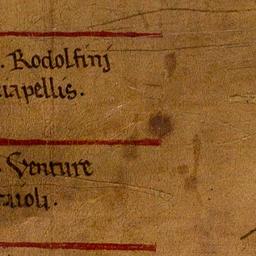 . Rodolfinj
ciapellis.
. Venture
raioli.